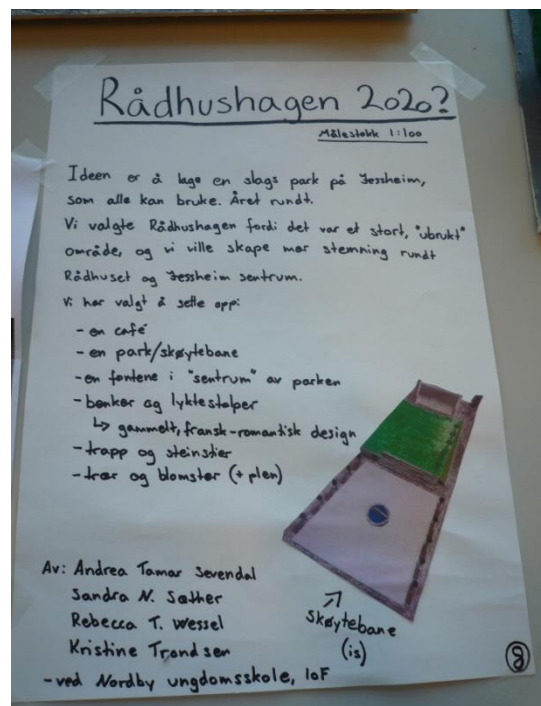 Rådhushagen 2020?
Målestokk 1:100
Ideen er å lage en slags park på Jessheim,
som alle kan bruke. Året rundt.
Vi valgte Rådhushagen fordi det var et stort, "ubrukt"
område, og vi ville skape mer stemning rundt
Rådhuset og Jessheim sentrum.
Vi har valgt å sette opp:
- en café
- en park/skøytebane
- en fontene i "sentrum" av parken
- benker og lyktestolper
↳ gammelt, fransk-romantisk design
- trapp og steinstier
- trær og blomster (+ plen)
Av: Andrea Tamar Sevendal
Sandra N. Sæther
Rebecca T. Wessel
Kristine Trondsen
- ved Nordby ungdomsskole, 10F
Skøytebane
(is)